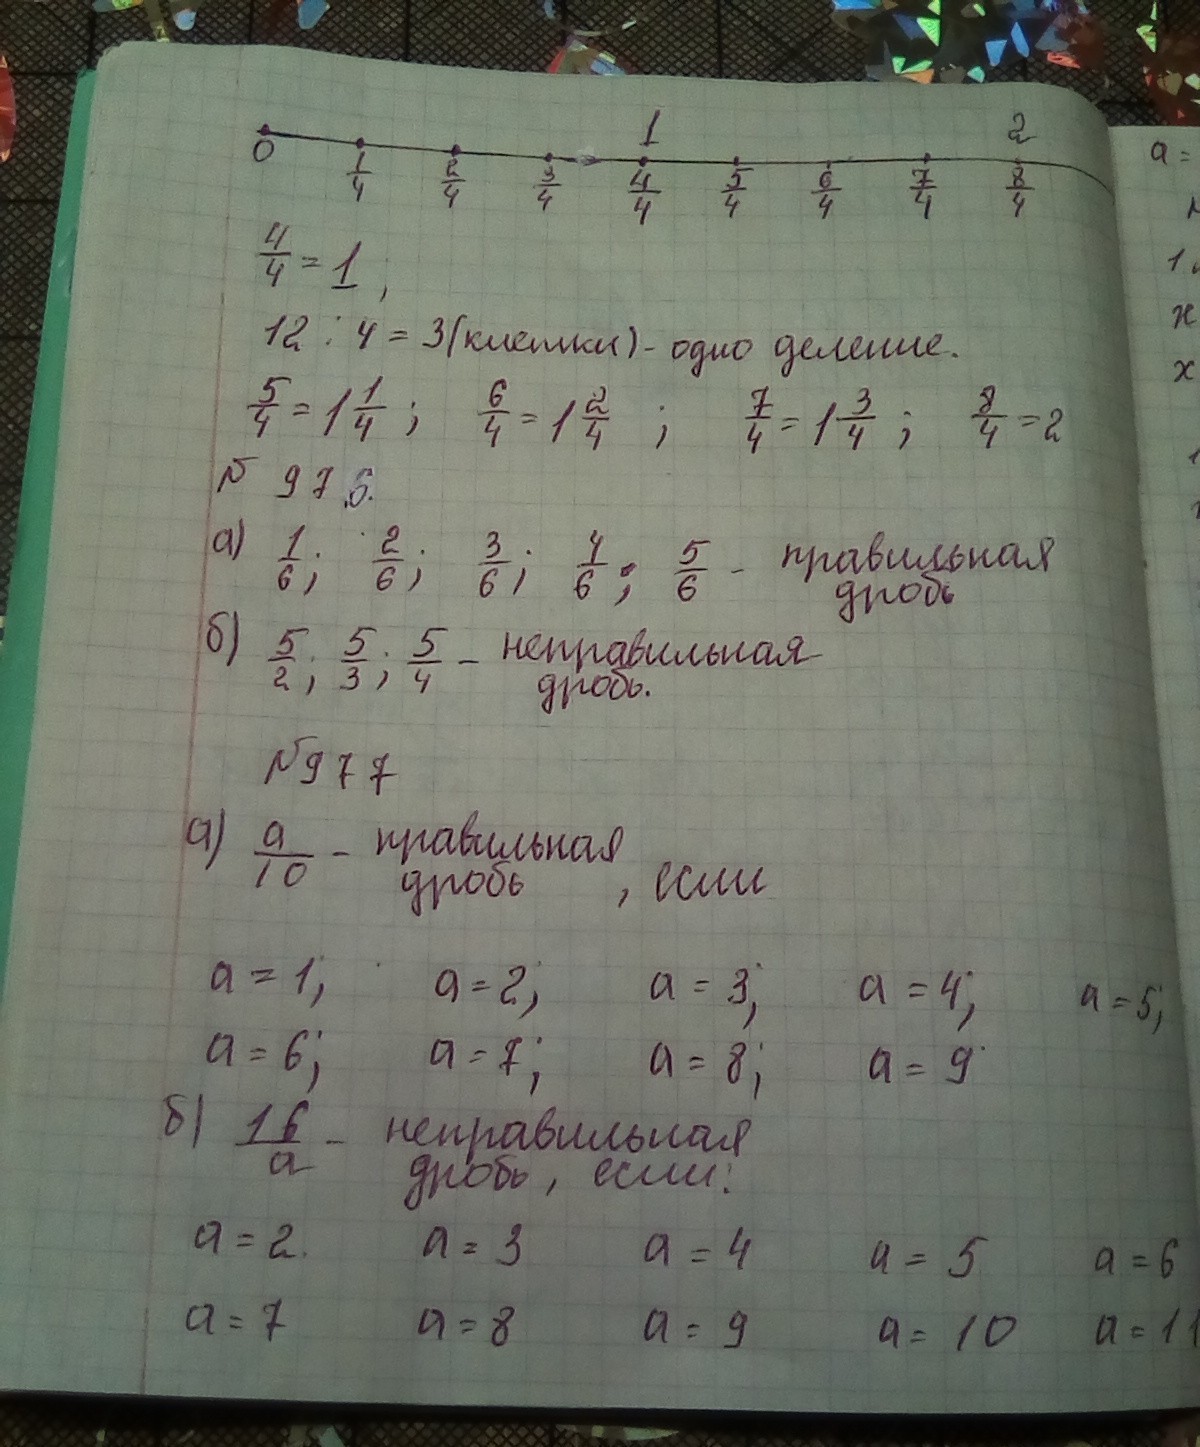 1 2
0 1/4 2/4 3/4 4/4 5/4 6/4 7/4 8/4
4/4 = 1;
12 : 4 = 3 (клетки) - одно деление.
5/4 = 1 1/4; 6/4 = 1 2/4; 7/4 = 1 3/4; 8/4 = 2
№ 976.
а) 1/6; 2/6; 3/6; 4/6; 5/6 - правильная
дробь
б) 5/2; 5/3; 5/4 - неправильная
дробь.
№977
а) a/10 - правильная
дробь, если
a = 1; a = 2; a = 3; a = 4; a = 5;
a = 6; a = 7; a = 8; a = 9
б) 16/a - неправильная
дробь, если:
a = 2. a = 3 a = 4 a = 5 a = 6
a = 7 a = 8 a = 9 a = 10 a = 11
a =
1
x
x